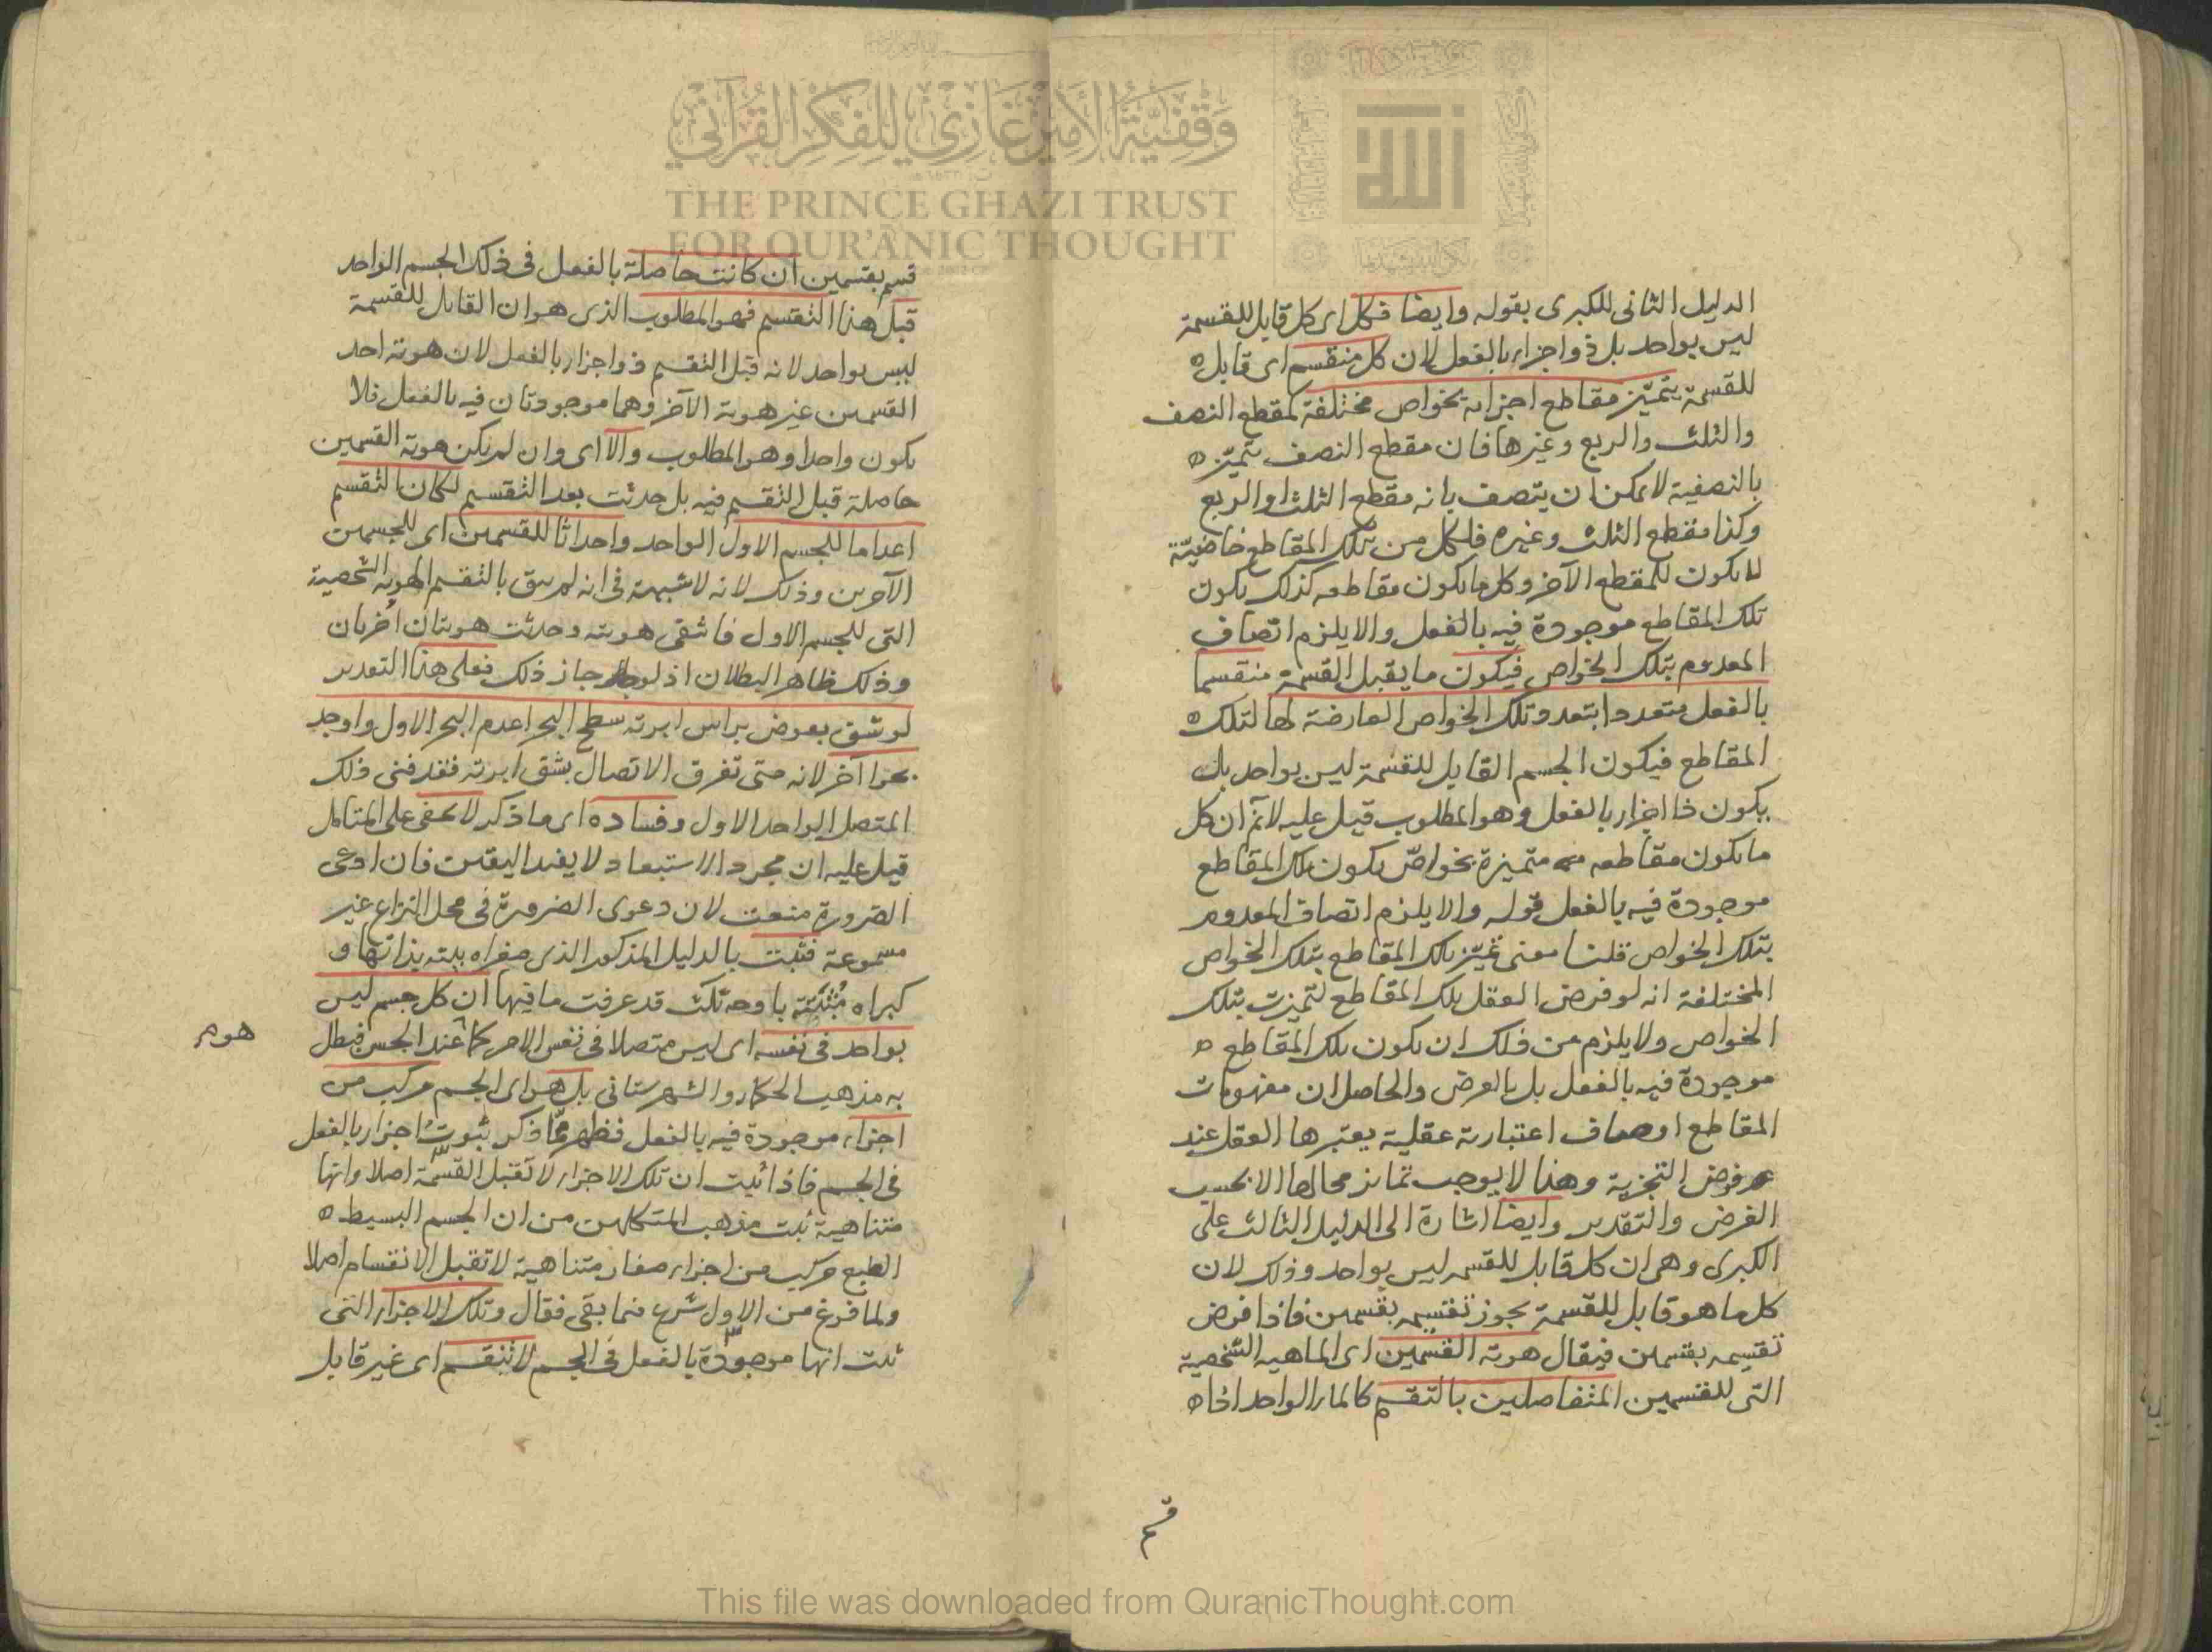 وقفية الأمير غازي للفكر القرآني
THE PRINCE GHAZI TRUST
FOR QUR'ANIC THOUGHT
الدليل الثانى للكبرى بقوله وايضا فكل اى كل قابل للقسمة
ليس بواحد بل ذو اجزاء بالفعل لان كل منقسم اى قابل
للقسمة يتميّز مقاطع اجزائه بخواص مختلفة كمقطع النصف
والثلث والربع وغيرها فان مقطع النصف يتميّز
بالنصفية لا يمكن ان يتصف بانه مقطع الثلث او الربع
وكذا مقطع الثلث وغيره فلكل من تلك المقاطع خاصيّة
لا يكون للمقطع الآخر وكل ما يكون مقاطعه كذلك يكون
تلك المقاطع موجودة فيه بالفعل والا يلزم اتصاف
المعدوم بتلك الخواص فيكون ما يقبل القسمة منقسما
بالفعل متعددا بتعدد تلك الخواص العارضة لها لتلك
المقاطع فيكون الجسم القابل للقسمة ليس بواحد بل
يكون ذا اجزاء بالفعل وهو المطلوب قيل عليه لا نم ان كل
ما يكون مقاطعه متميزة بخواصّ يكون تلك المقاطع
موجودة فيه بالفعل قوله والا يلزم اتصاف المعدوم
بتلك الخواص قلنا معنى تميّز تلك المقاطع بتلك الخواص
المختلفة انه لو فرض العقل تلك المقاطع لتميزت بتلك
الخواص ولا يلزم من ذلك ان يكون تلك المقاطع
موجودة فيه بالفعل بل بالعرض والحاصل ان مفهومات
المقاطع اوصاف اعتبارية عقلية يعتبرها العقل عند
فرض التجزية وهذا لا يوجب تمايز محالها الا بحسب
الفرض والتقدير وايضا اشارة الى الدليل الثالث على
الكبرى وهى ان كل قابل للقسمة ليس بواحد وذلك لان
كل ما هو قابل للقسمة يجوز تقسيمه بقسمين فاذا فرض
تقسيمه بقسمين فيقال هوية القسمين اى الماهية الشخصية
التى للقسمين المتفاصلين بالتقسيم كالماء الواحد اذا
قسم
قسم بقسمين ان كانت حاصلة بالفعل فى ذلك الجسم الواحد
قبل هذا التقسيم فهو المطلوب الذى هو ان القابل للقسمة
ليس بواحد لانه قبل التقسيم ذو اجزاء بالفعل لان هوية احد
القسمين غير هوية الآخر وهما موجودتان فيه بالفعل فلا
يكون واحدا وهو المطلوب والا اى وان لم يكن هوية القسمين
حاصلة قبل التقسيم فيه بل حدثت بعد التقسيم لكان التقسيم
اعداما للجسم الاول الواحد واحداثا للقسمين اى للجسمين
الآخرين وذلك لانه لا شبهة فى انه لم يبق بالتقسيم الهوية الشخصية
التى للجسم الاول فانتفى هويته وحدثت هويتان اُخريان
وذلك ظاهر البطلان اذ لو جاز ذلك فعلى هذا التقدير
لو شق بعوض براس ابرته سطح البحر اعدم البحر الاول واوجد
بحرا آخر لانه متى تفرق الاتصال بشق ابرته فقد فنى ذلك
المتصل الواحد الاول وفساده اى ما ذكر لا يخفى على المتأمل
قيل عليه ان مجرد الاستبعاد لا يفيد اليقين فان ادعى
الضرورة منعت لان دعوى الضرورة فى محل النزاع غير
مسموعة فثبت بالدليل المذكور الذى صغراه بينة بذاتها و
كبراه مُثبَتة باوجه ثلث قد عرفت ما فيها ان كل جسم ليس
بواحد فى نفسه اى ليس متصلا فى نفس الامر كما عند الحس فبطل
هو م
به مذهب الحكماء والشهرستانى بل هو اى الجسم مركب من
اجزاء موجودة فيه بالفعل فظهر ممّا ذكر ثبوتُ اجزاء بالفعل
فى الجسم فاذا ثبت ان تلك الاجزاء لا تقبل القسمة اصلا وانها
متناهية ثبت مذهب المتكلمين من ان الجسم البسيط
الطبع مركب من اجزاء صغار متناهية لا تقبل الانقسام اصلا
ولما فرغ من الاول شرع فيما بقى فقال وتلك الاجزاء التى
ثبت انها موجودة بالفعل فى الجسم لا تنقسم اى غير قابل
This file was downloaded from QuranicThought.com